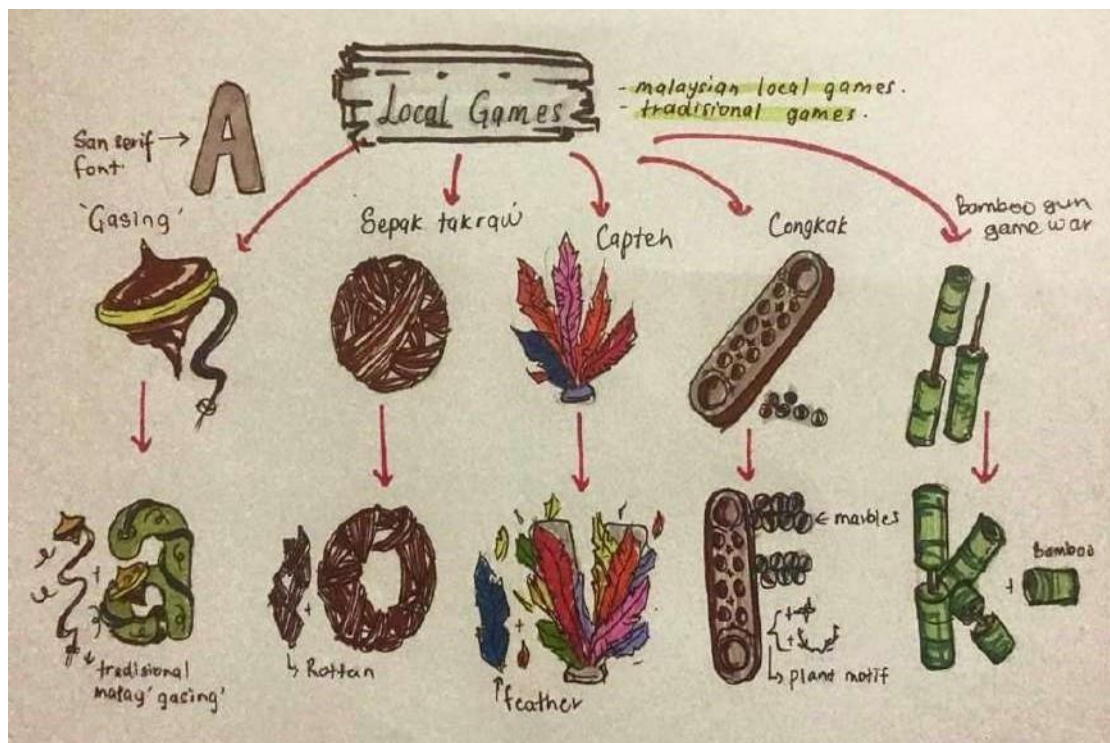 Local Games
- malaysian local games.
- tradisional games.
San serif
font.
A
'Gasing'
Sepak takraw
Capteh
Congkak
Bamboo gun
game war
a
O
V
F
K
+
+
+
← marbles
+
+
+
Bamboo
tradisional
malay 'gasing'
Rottan
feather
plant motif